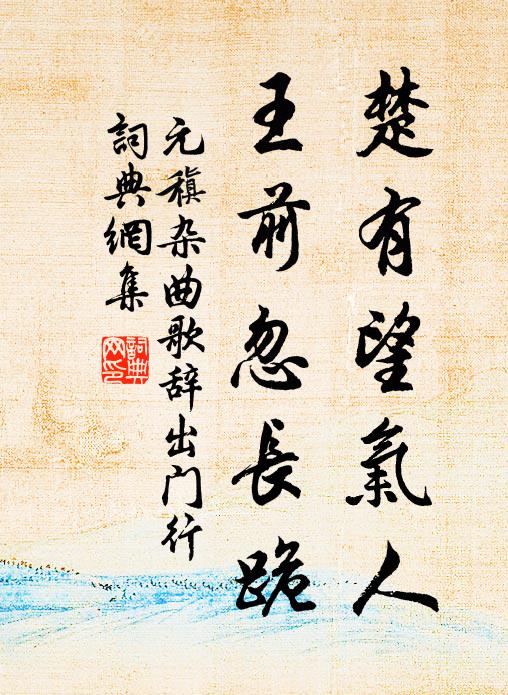 楚有望氣人
王前忽長跪
元稹杂曲歌辞出门行
詞典網集
詞典網印